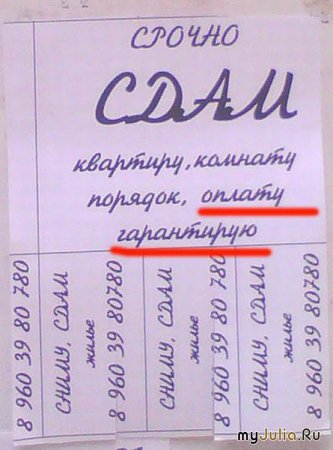 СРОЧНО
СДАМ
квартиру, комнату
порядок, оплату
гарантирую
8 960 39 80 780
СНИМУ, СДАМ
жилье
8 960 39 80780
СНИМУ, СДАМ
жилье
8 960 39 80 780
СНИМУ, СДАМ
жилье
8 960 39 80780
myJulia.Ru